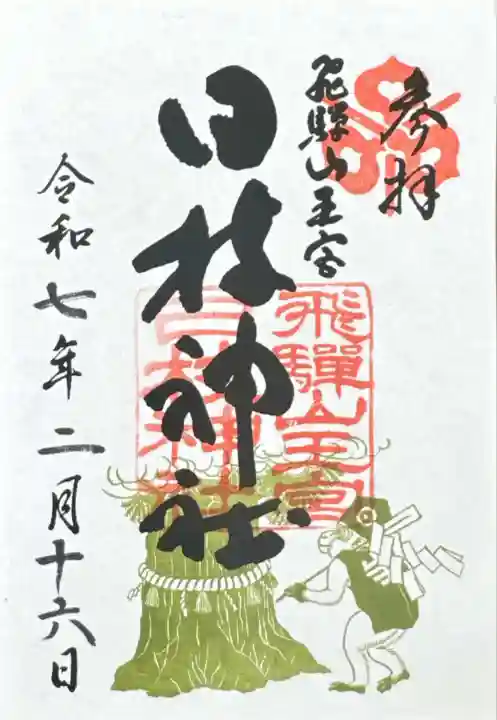 参拝
飛騨山王宮
日枝神社
令和七年二月十六日
飛驒山王宮
日枝神社